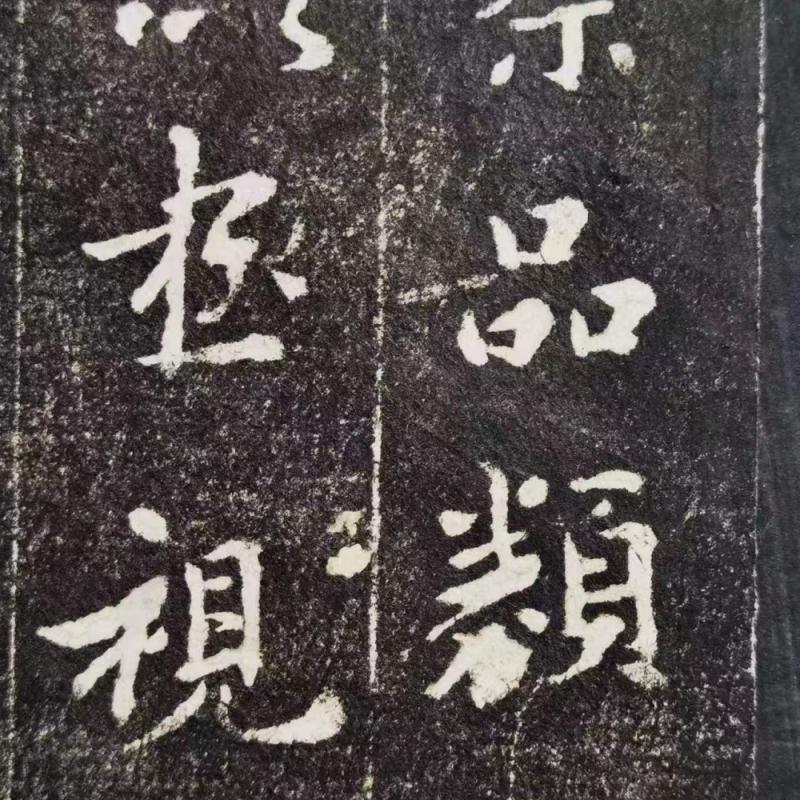 品類
極視